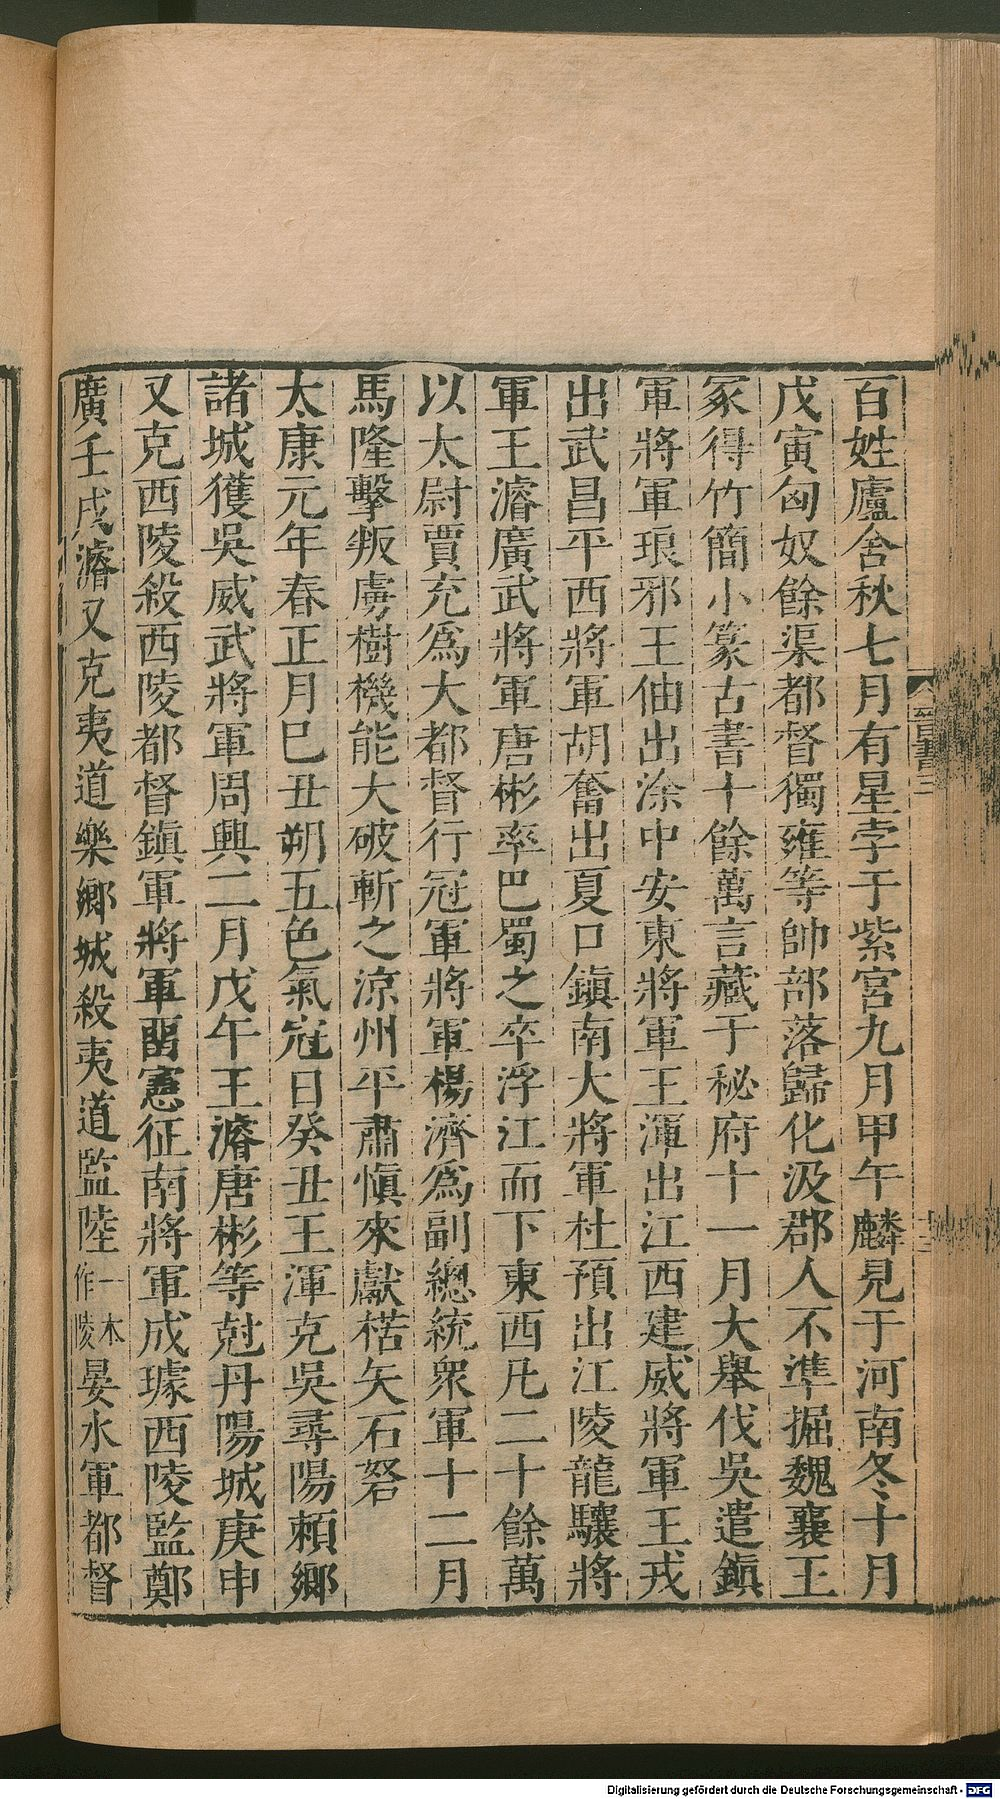 百姓廬舍秋七月有星孛于紫宮九月甲午麟見于河南冬十月
戊寅匈奴餘渠都督獨雍等帥部落歸化汲郡人不準掘魏襄王
冢得竹簡小篆古書十餘萬言藏于秘府十一月大舉伐吳遣鎮
軍將軍琅邪王伷出涂中安東將軍王渾出江西建威將軍王戎
出武昌平西將軍胡奮出夏口鎮南大將軍杜預出江陵龍驤將
軍王濬廣武將軍唐彬率巴蜀之卒浮江而下東西凡二十餘萬
以太尉賈充爲大都督行冠軍將軍楊濟爲副總統衆軍十二月
馬隆擊叛虜樹機能大破斬之涼州平肅愼來獻楛矢石砮
太康元年春正月己丑朔五色氣冠日癸丑王渾克吳尋陽賴鄉
諸城獲吳威武將軍周興二月戊午王濬唐彬等尅丹陽城庚申
又克西陵殺西陵都督鎮軍將軍畱憲征南將軍成璩西陵監鄭
廣壬戌濬又克夷道樂鄉城殺夷道監陸一本作陵晏水軍都督
晉書三
十三
Digitalisierung gefördert durch die Deutsche Forschungsgemeinschaft - DFG